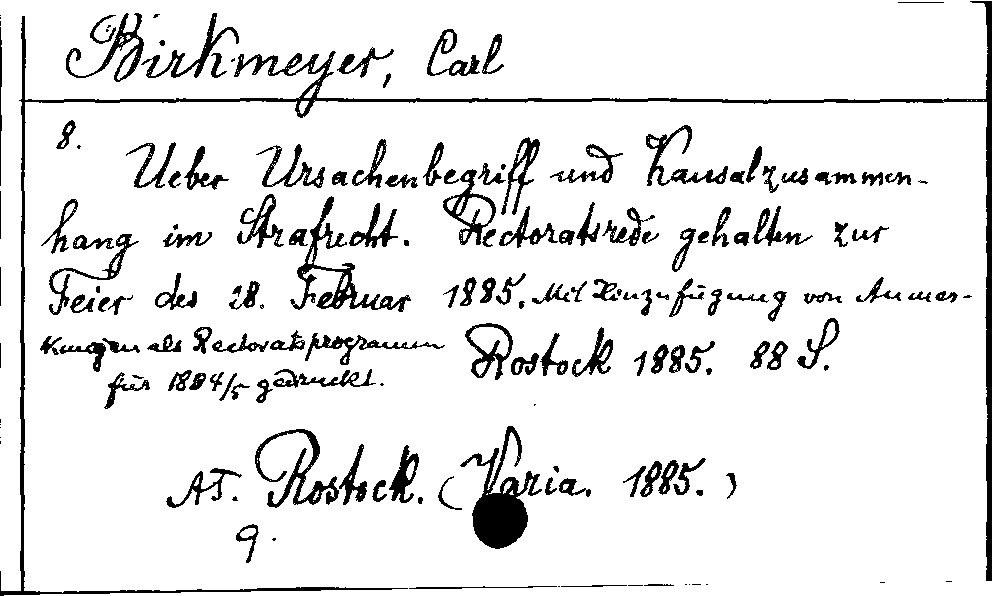 Birkmeyer, Carl
8.
Ueber Ursachenbegriff und Kausalzusammen-
hang im Strafrecht. Rectoratsrede gehalten zur
Feier des 28. Februar 1885. Mit Hinzufügung von Anmer-
kungen als Rectoratsprogramm
für 1884/5 gedruckt.
Rostock 1885. 88 S.
AT. Rostock. (Varia. 1885.)
9.